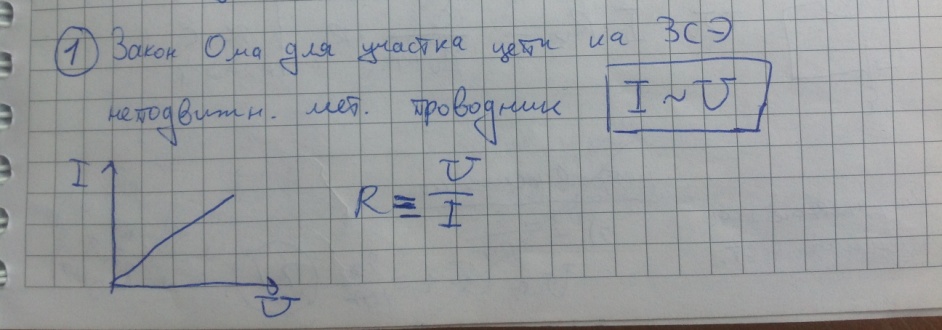 1 Закон Ома для участка цепи на ЗСЭ
неподвижн. мет. проводник I ~ U
I
R ≡ U/I
U